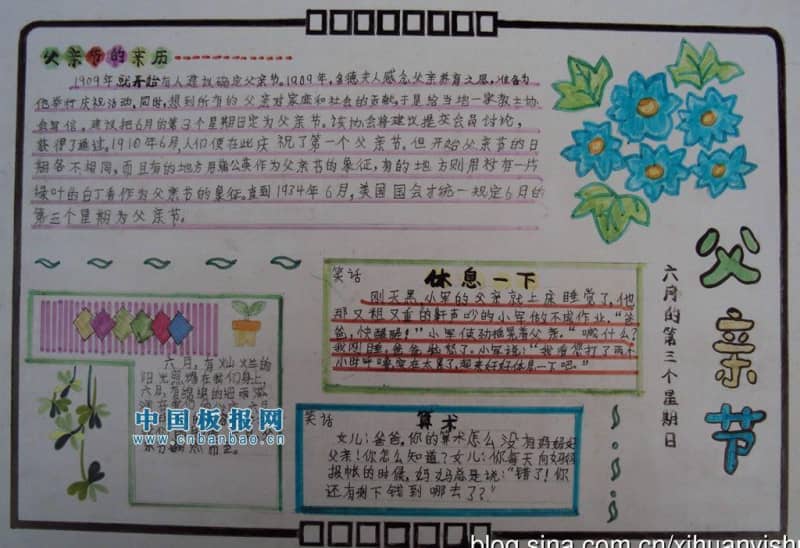 父亲节的来历
1909年就开始有人建议确定父亲节。1909年,多德夫人感念父亲养育之恩,准备为
他举行庆祝活动,同时,想到所有的父亲对家庭和社会的贡献,于是给当地一家教士协
会写信,建议把6月的第3个星期日定为父亲节。该协会将建议提交会员讨论,
获得了通过。1910年6月,人们便在此庆祝了第一个父亲节。但开始父亲节的日
期各不相同,而且有的地方用蒲公英作为父亲节的象征,有的地方则用衬有一片
绿叶的白丁香作为父亲节的象征。直到1934年6月,美国国会才统一规定6月的
第三个星期为父亲节。
父亲节
六月的第三个星期日
笑话
休息一下
刚天黑,小军的父亲就上床睡觉了,他
那又粗又重的鼾声吵的小军做不成作业。"爸
爸,快醒醒!"小军使劲摇晃着父亲。"喊什么?
小军说:"我看您打了两个
小时呼噜,实在太累了,起来好好休息一下吧。"
六月,有灿烂的
阳光照耀在我们身上,
六月
中国板报网
www.cnbanbao.cn
笑话
算术
女儿:爸爸,你的算术怎么没有妈妈好
父亲:你怎么知道?女儿:你每天向妈妈
报帐的时候,妈妈总是说:"错了!你
还有剩下钱到哪去了?"
blog.sina.com.cn/xihuanyishu